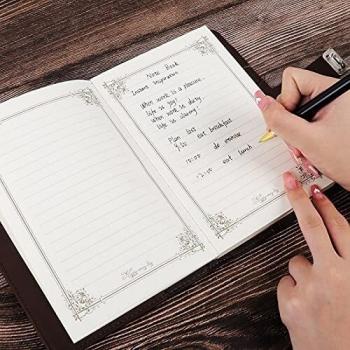 Note Book
Inspiration
When work is a pleasure,
life is joy!
When work is duty,
life is slavery!
Plan list eat breakfast
9:00
10:00 do exercise
12:00 eat lunch